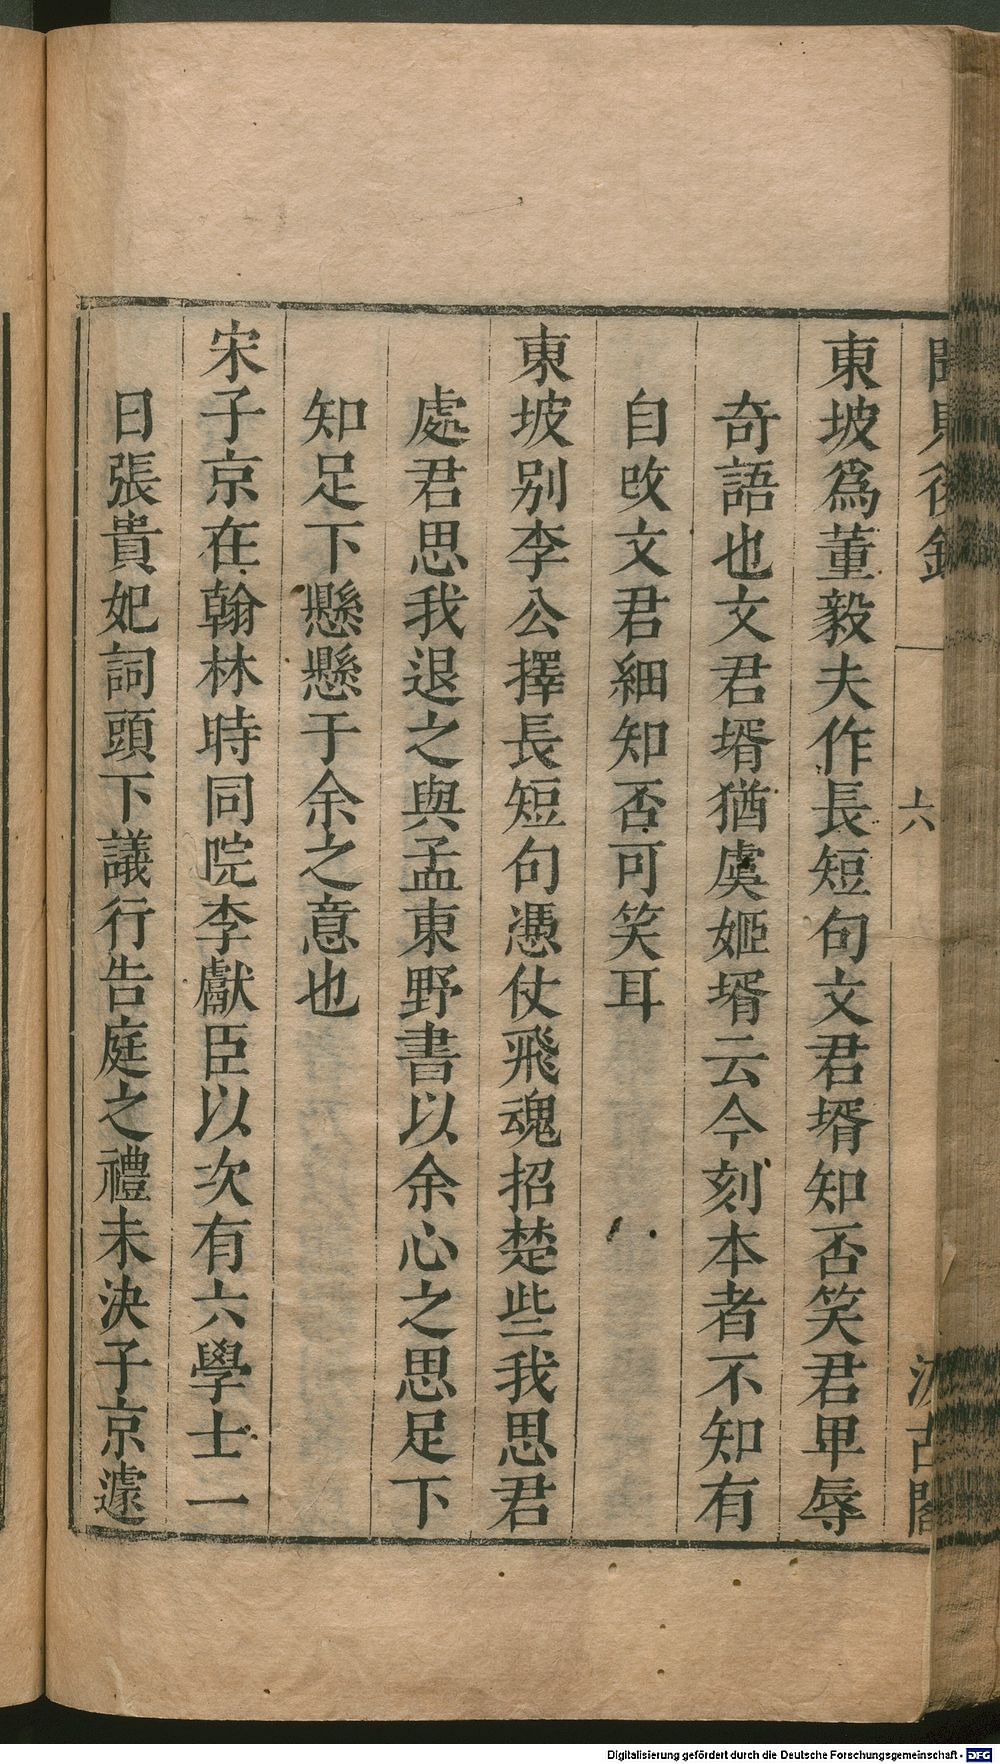 聞見後錄 六 汲古閣
東坡爲董毅夫作長短句文君壻知否笑君卑辱
奇語也文君壻猶虞姬壻云今刻本者不知有
自改文君細知否可笑耳
東坡别李公擇長短句憑仗飛魂招楚些我思君
處君思我退之與孟東野書以余心之思足下
知足下懸懸于余之意也
宋子京在翰林時同院李獻臣以次有六學士一
日張貴妃詞頭下議行告庭之禮未決子京遽
Digitalisierung gefördert durch die Deutsche Forschungsgemeinschaft - DFG